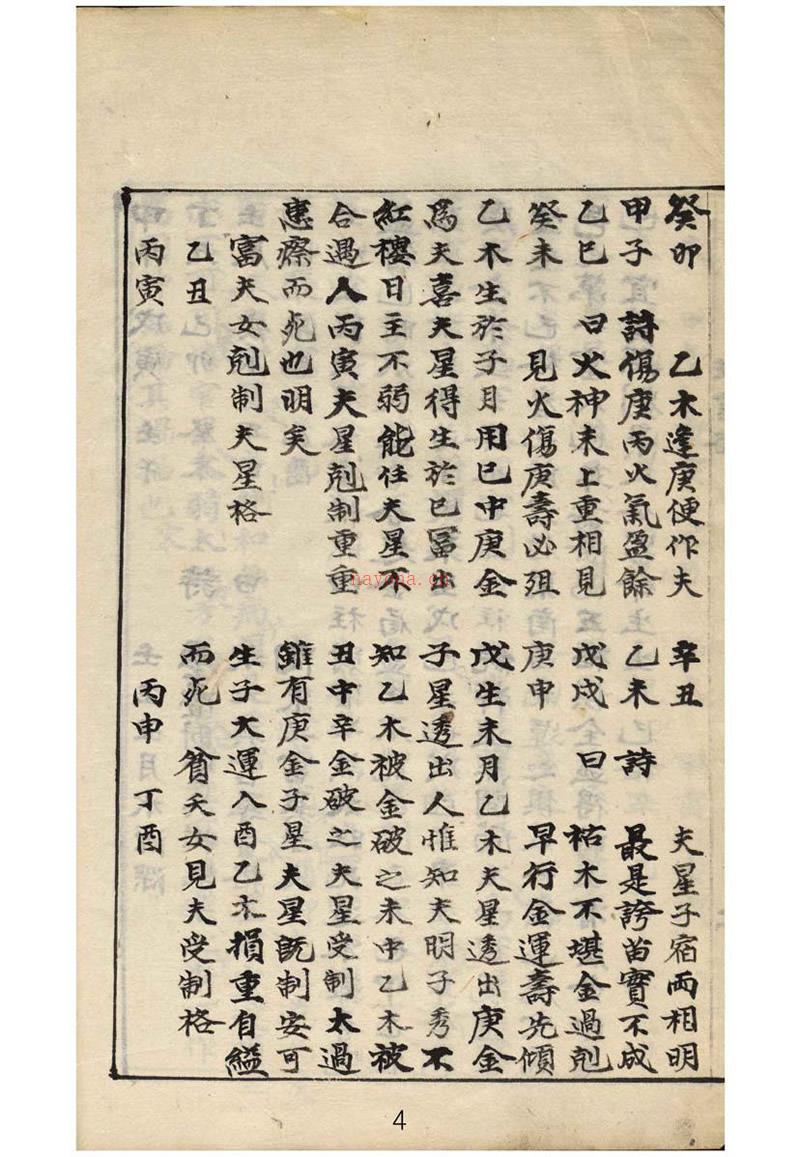 癸卯 乙木逢庚便作夫
甲子 詩傷庚丙火氣盈餘
乙巳 曰火神未上重相見
癸未 見火傷庚壽必殂
乙木生於子月用巳中庚金
為夫喜夫星得生於巳冨出
紅樓日主不弱能任夫星不
合遇人丙寅夫星剋制重重
患瘵而死也明矣
富夫女剋制夫星格
乙丑
丙寅
辛丑 夫星子宿兩相明
乙未 詩 最是誇苗實不成
戊戌 曰 枯木不堪金過剋
庚申 早行金運壽先傾
戊生未月乙木夫星透出庚金
子星透出人惟知夫明子秀不
知乙木被金破之未中乙木被
丑中辛金破之夫星受制太過
雖有庚金子星夫星既制安可
生子大運入酉乙木損重自縊
而死 貧夭女見夫受制格
丙申 丁酉
nayona.cn
4